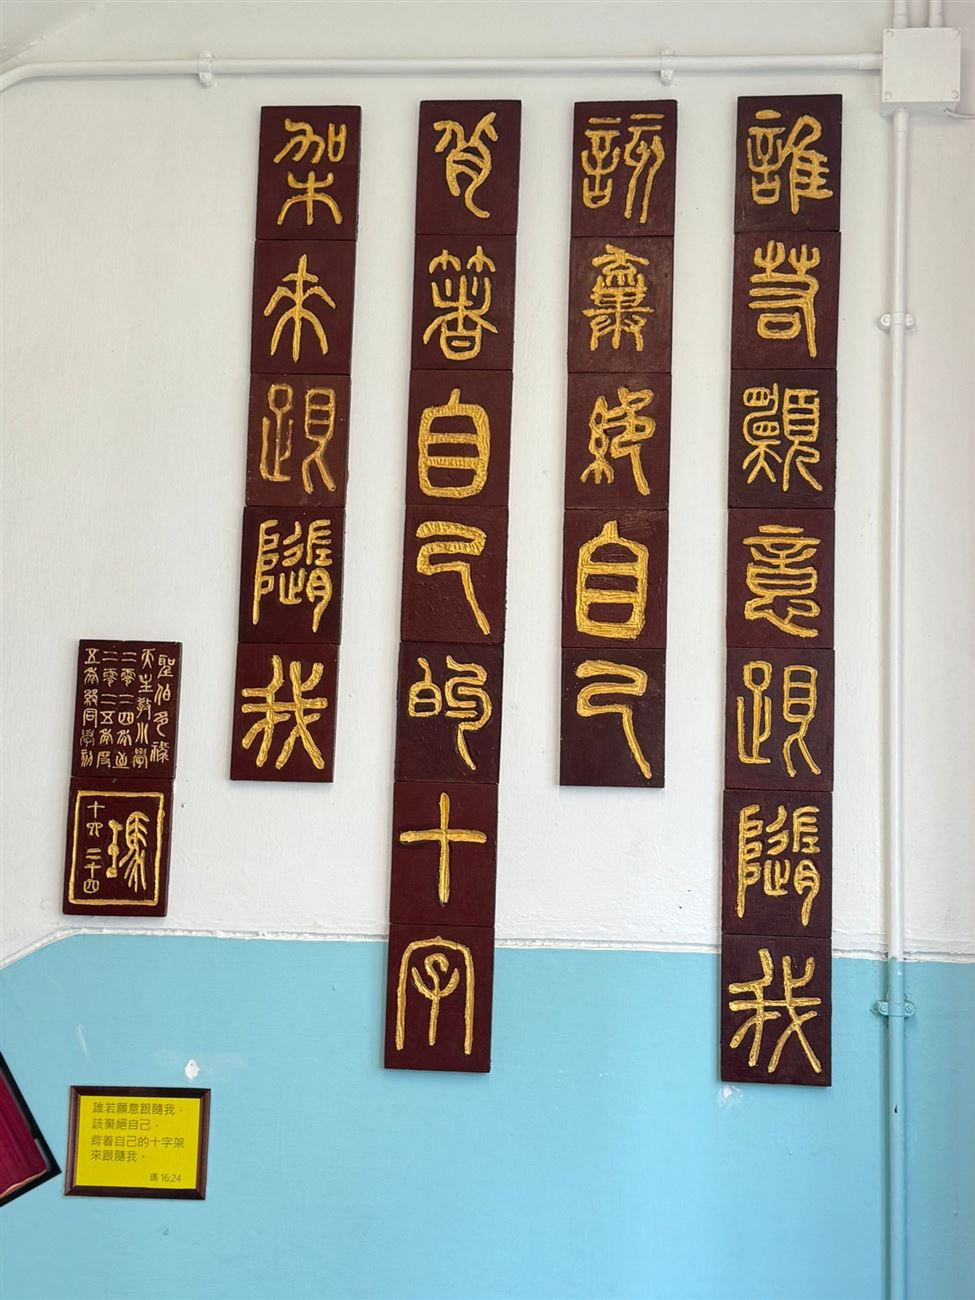 誰若願意跟隨我
該棄絕自己
背著自己的十字
架來跟隨我
聖伯多祿
天主教小學
二零一四年至
二零一五年度
五年級同學刻
瑪
十六 二十四
誰若願意跟隨我，
該棄絕自己，
背着自己的十字架
來跟隨我。
瑪 16:24